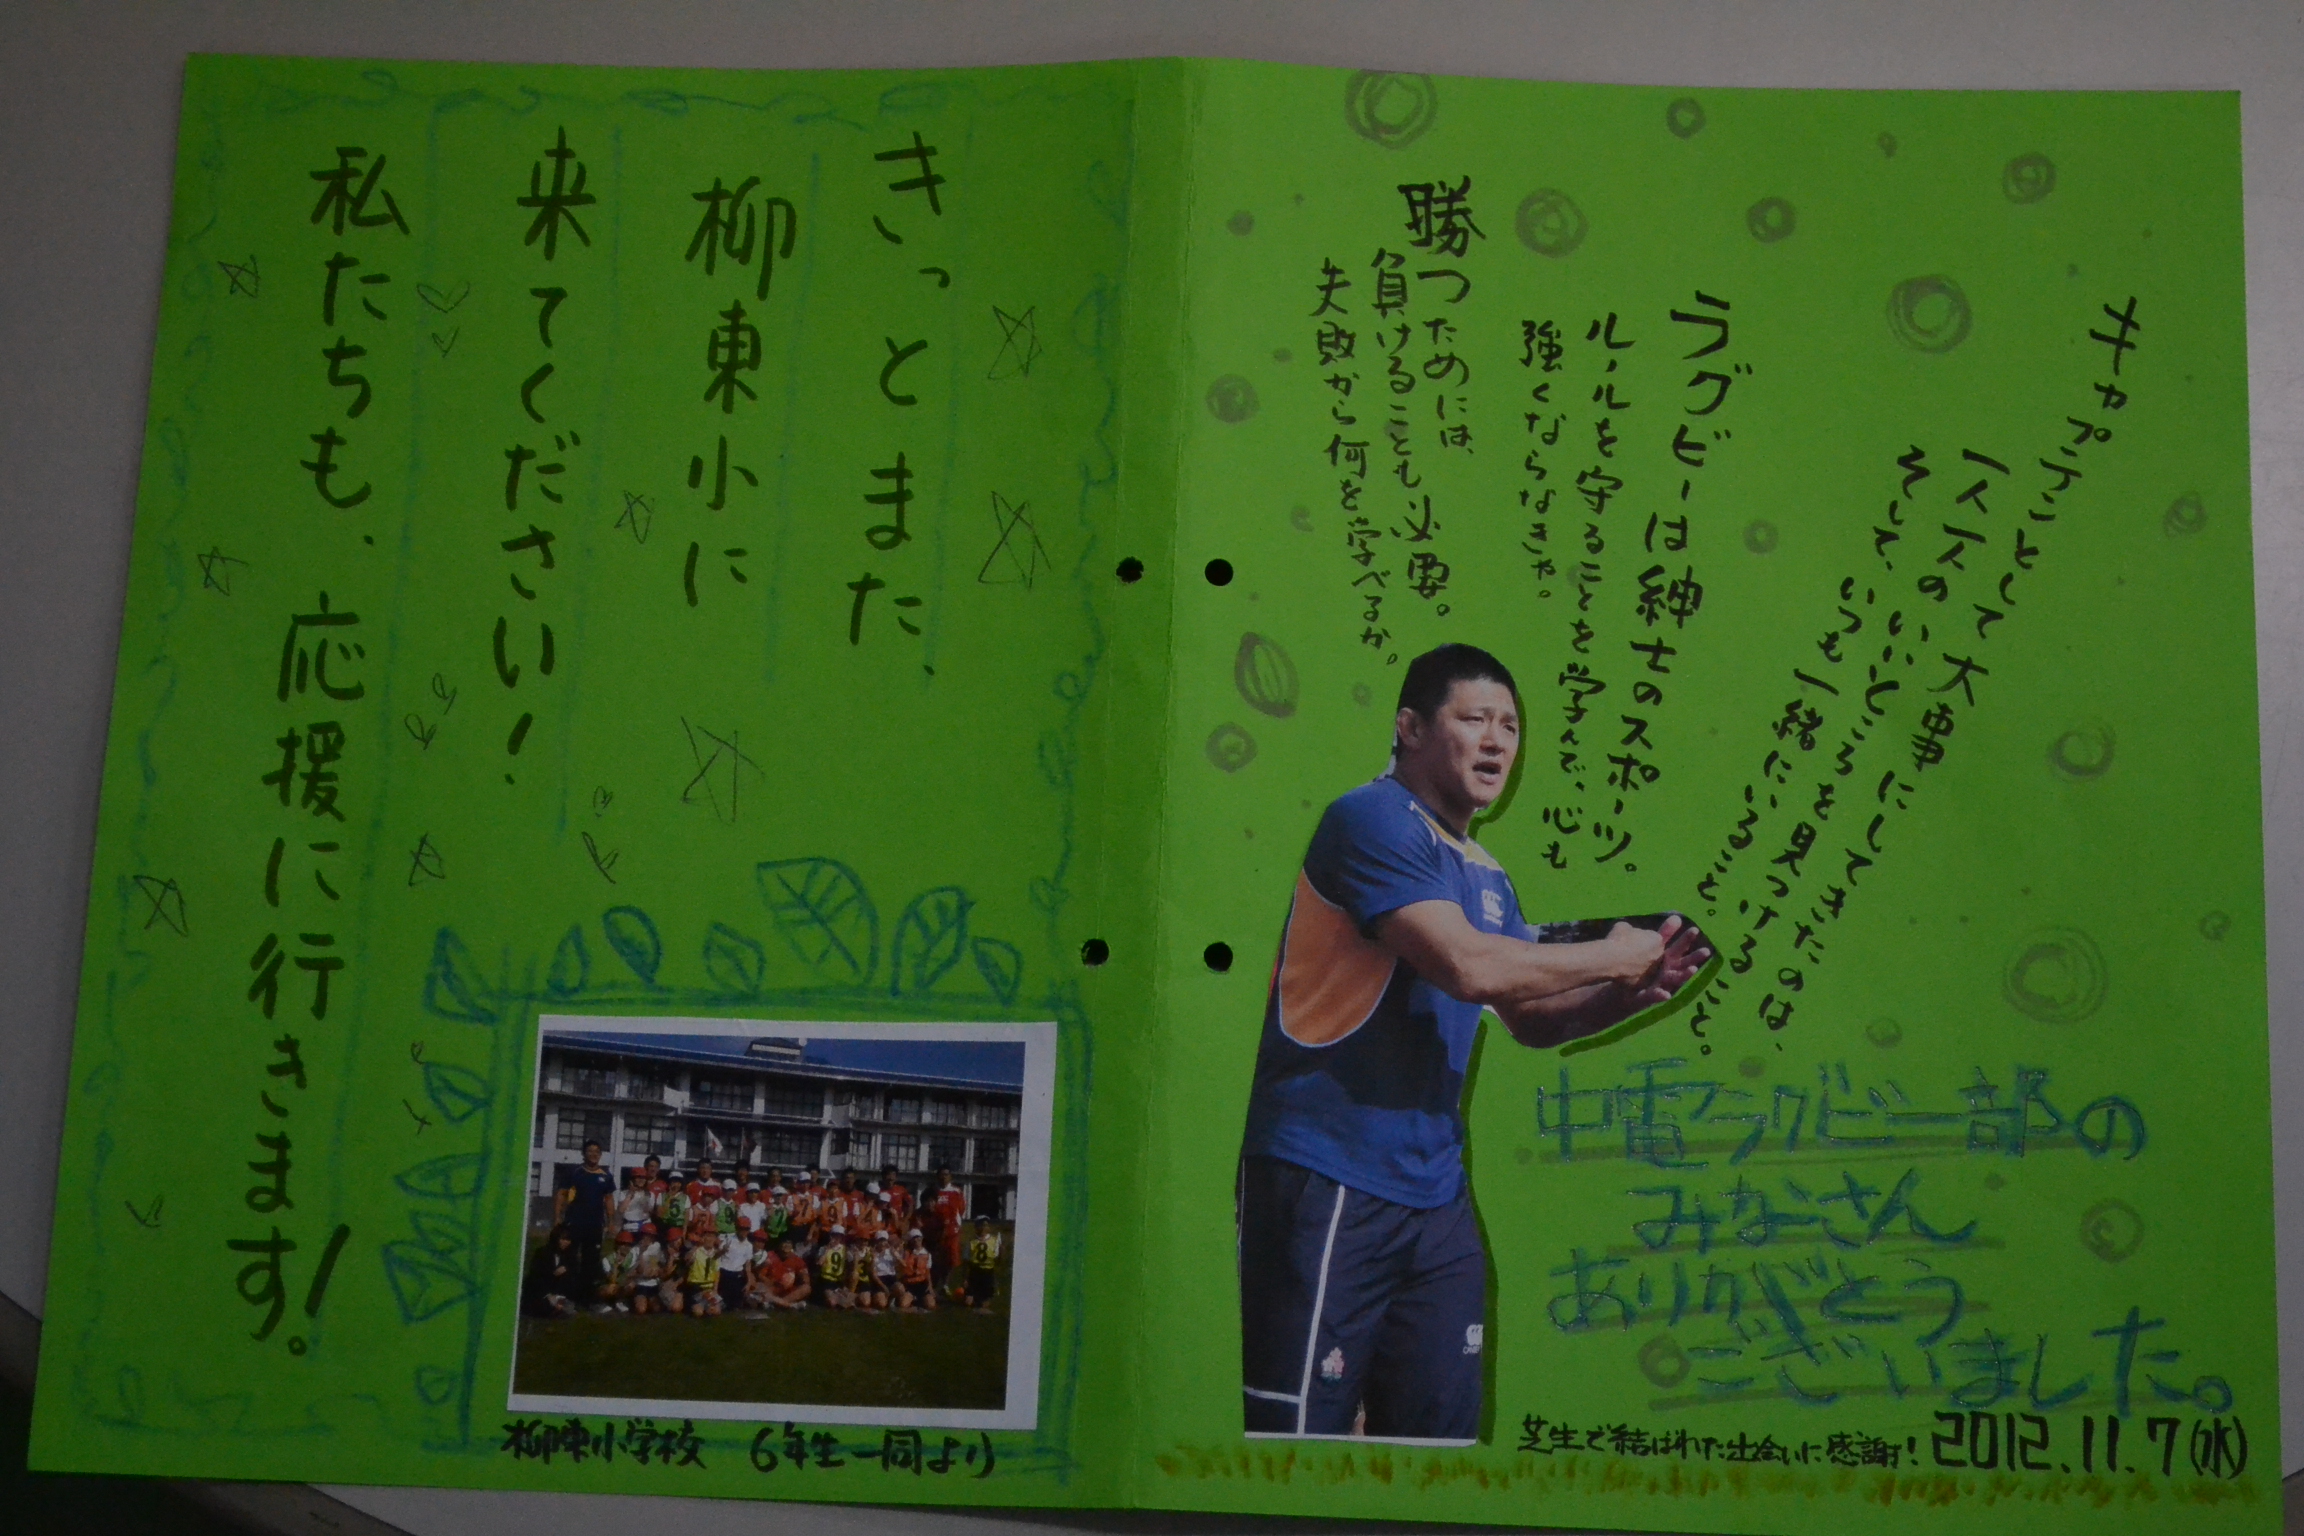 キャプテンとして大事にしてきたのは、
一人一人のいいところを見つけること。
そして、いつも一緒にいること。
ラグビーは紳士のスポーツ。
ルールを守ることを学んで、心も
強くならなきゃ。
勝つためには、
負けることも必要。
失敗から何を学べるか。
中電ラグビー部の
みなさん
ありがとう
ございました。
芝生で結ばれた出会いに感謝! 2012.11.7(水)
きっとまた、
柳東小に
来てください!
私たちも、応援に行きます!。
柳東小学校 6年生一同より